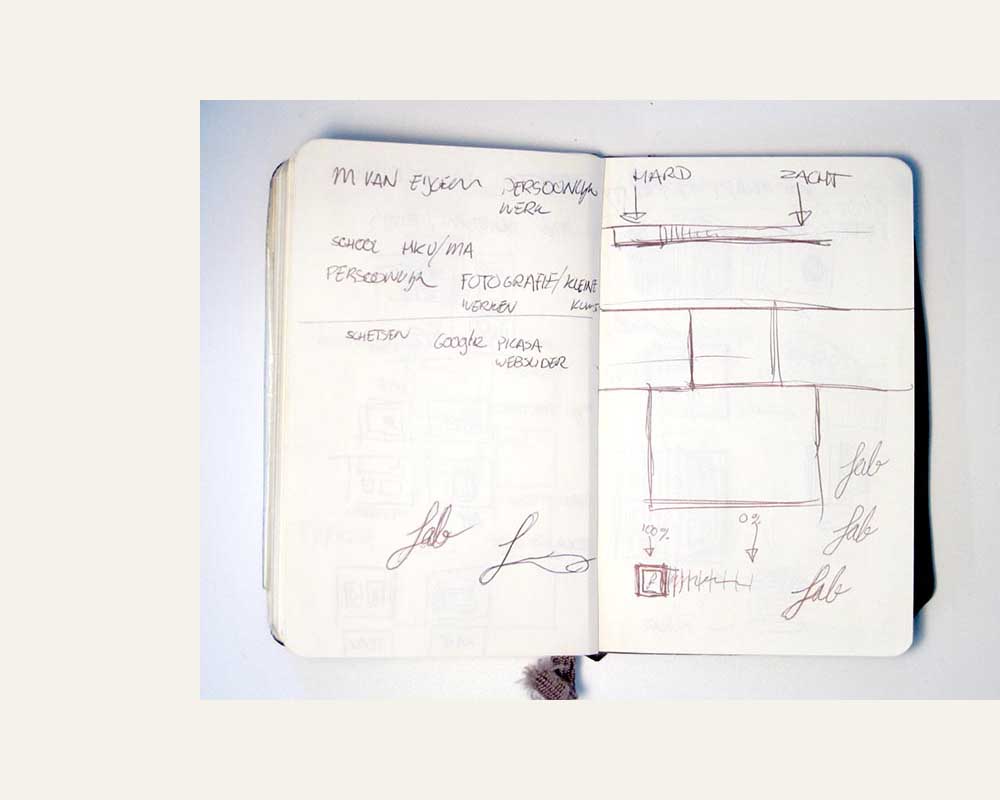 M VAN EIJGEM PERSOONLIJK
WERK
SCHOOL HKU/MA
PERSOONLIJK FOTOGRAFIE/KLEINE
WERKEN
SCHETSEN Google PICASA
WEBSLIDER
fab
HARD ZACHT
fab
fab
100% 0%
fab